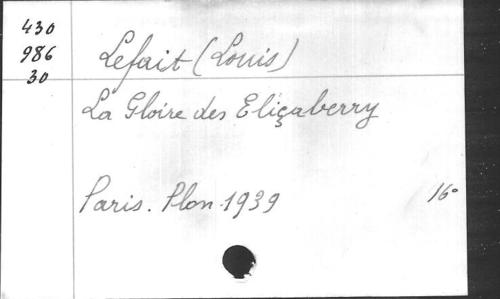 430
986
30
Lefait (Louis)
La Gloire des Eliçaberry
Paris. Plon. 1939
16°